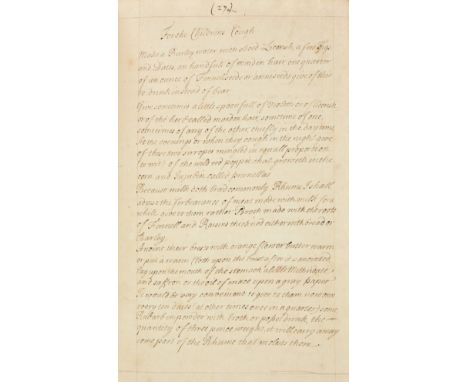 (274)
For the Childrens Cough
Make a Barley water with sliced Licorish, a few figs
and Dates, an handfull of maiden hair one quarter
of an ounce of Fennellseeds or anniseeds give of this
to drink instead of bear
Give sometimes a little spoon full of Violets or of licorish
or of the herb called maiden hair, sometime of one,
sometimes of any of the other, chiefly in the day time
In the evenings or when they cough in the night give
of these two sirropes mingled in equall proportion
(to wit) of the wild red poppie that groweth in the
corn and Jujubes called
Because milk doth bread commonly Rhume I shall
advise the forbearance of meat made with milk for a
while give to them rather Broth made with the roots
of Fennell and Raisins thickned either with bread or
Barley.
Anoint their brest with orange flower butter warm
or put a warm Cloth upon the brest after it is anointed
Lay upon the mouth of the stomach a little
and saffron or the oil of mace upon a gray paper
It would be very convenient to give to them now and
every ten daies (as other times over in a quarter) some
Rubarb in powder with broth or posset drink, the
quantity of three pence weight, it will carry away
some part of the Rhume that molests them.